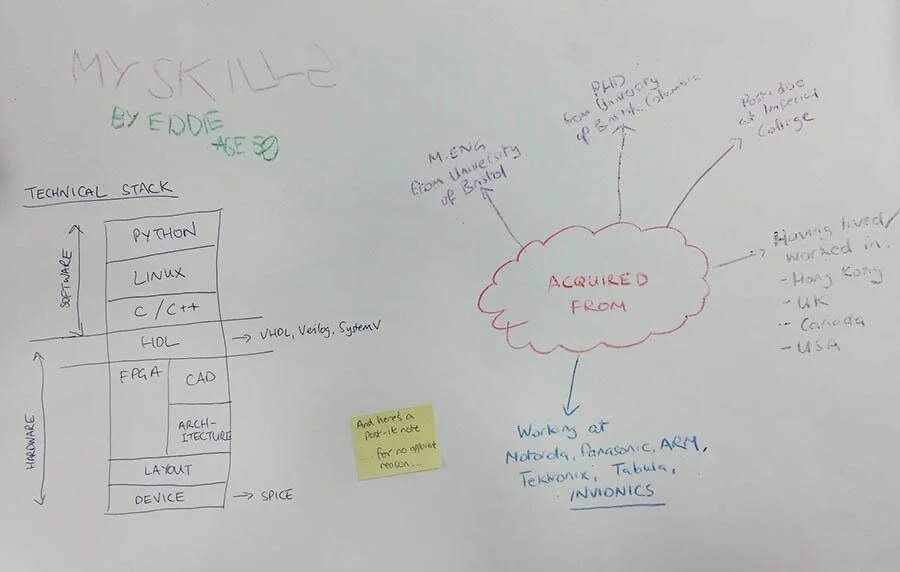 MY SKILLS
BY EDDIE
AGE 30
TECHNICAL STACK
SOFTWARE
PYTHON
LINUX
C / C++
HDL
→ VHDL, Verilog, SystemV
HARDWARE
FPGA
CAD
ARCH-
ITECTURE
LAYOUT
DEVICE
→ SPICE
And here's a
Post-it note
for no apparent
reason...
ACQUIRED
FROM
M.ENG
from University
of Bristol
PHD
from University
of British Columbia
Post-doc
at Imperial
College
Having lived/
worked in:
- Hong Kong
- UK
- Canada
- USA
Working at
Motorola, Panasonic, ARM,
Tektronix, Tabula,
INVIONICS